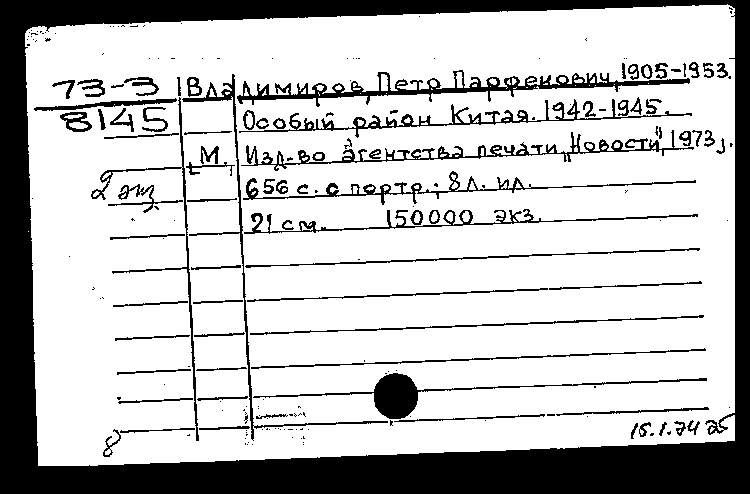 73-3 Владимиров, Петр Парфенович, 1905-1953.
8145 Особый район Китая. 1942-1945.
М., Изд-во агентства печати "Новости", 1973,.
2 экз 656 с. с портр.; 8 л. ил.
21 см. 150000 экз.
8
15.1.74